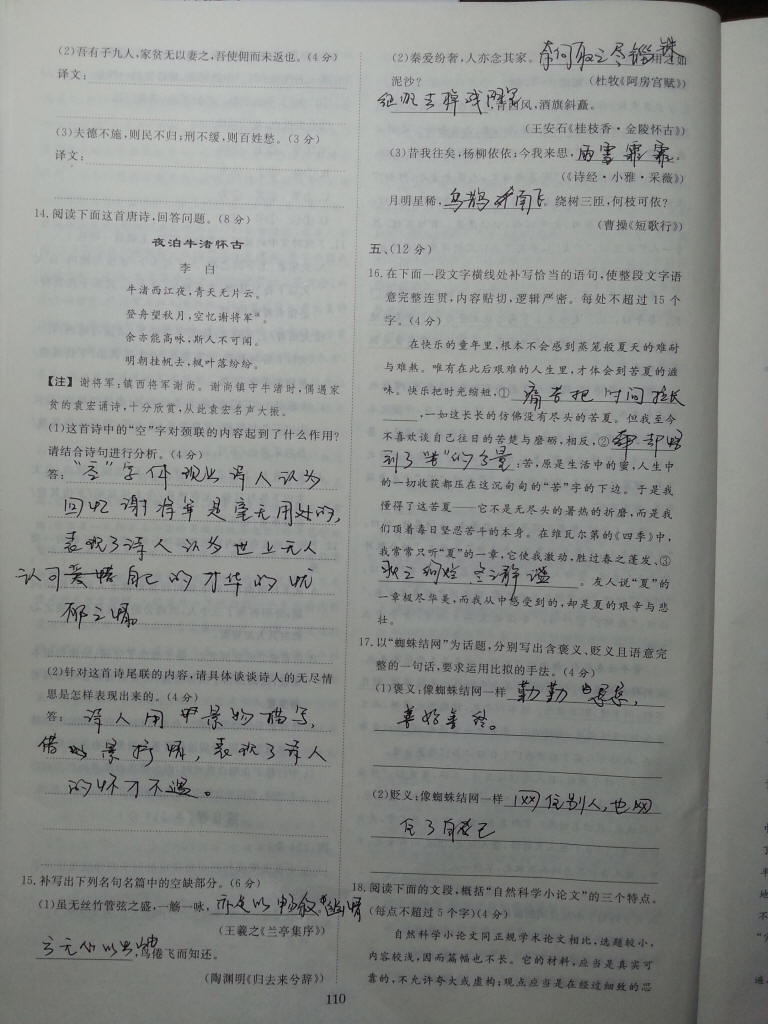 (2)吾有子九人,家贫无以妻之,吾使佣而未返也。(4分)
译文:
(3)夫德不施,则民不归;刑不缓,则百姓愁。(3分)
译文:
14.阅读下面这首唐诗,回答问题。(8分)
夜泊牛渚怀古
李 白
牛渚西江夜,青天无片云。
登舟望秋月,空忆谢将军。
余亦能高咏,斯人不可闻。
明朝挂帆去,枫叶落纷纷。
【注】 谢将军:镇西将军谢尚。谢尚镇守牛渚时,偶遇家
贫的袁宏诵诗,十分欣赏,从此袁宏名声大振。
(1)这首诗中的“空”字对颈联的内容起到了什么作用?
请结合诗句进行分析。(4分)
答:“空”字体现出诗人认为
回忆谢将军是毫无用处的,
表现了诗人认为世上无人
认可自己的才华的忧
郁之情。
(2)针对这首诗尾联的内容,请具体谈谈诗人的无尽情
思是怎样表现出来的。(4分)
答:诗人用景物描写,
借景抒情,表现了诗人
的怀才不遇。
15.补写出下列名句名篇中的空缺部分。(6分)
(1)虽无丝竹管弦之盛,一觞一咏,亦足以畅叙幽情
(王羲之《兰亭集序》)
云无心以出岫,鸟倦飞而知还。
(陶渊明《归去来兮辞》)
(2)秦爱纷奢,人亦念其家。奈何取之尽锱铢,用之如
泥沙?
(杜牧《阿房宫赋》)
去棹残阳里,背西风,酒旗斜矗。
(王安石《桂枝香·金陵怀古》)
(3)昔我往矣,杨柳依依;今我来思,雨雪霏霏。
(《诗经·小雅·采薇》)
月明星稀,乌鹊南飞。绕树三匝,何枝可依?
(曹操《短歌行》)
五、(12分)
16.在下面一段文字横线处补写恰当的语句,使整段文字语
意完整连贯,内容贴切,逻辑严密。每处不超过15个
字。(4分)
在快乐的童年里,根本不会感到蒸笼般夏天的难耐
与难熬。唯有在此后艰难的人生里,才体会到苦夏的滋
味。快乐把时光缩短,①痛苦把时间拉长
,一如这长长的仿佛没有尽头的苦夏。但我至今
不喜欢谈自己往日的苦楚与磨砺,相反,②却
到了“苦”的含量;苦,原是生活中的蜜,人生中
的一切收获都压在这沉甸甸的“苦”字的下边。于是我
懂得了这苦夏——它不是无尽头的暑热的折磨,而是我
们顶着毒日坚忍苦斗的本身。在维瓦尔第的《四季》中,
我常常只听“夏”的一章,它使我激动,胜过春之蓬发、③
秋之绚烂、冬之静谧。友人说“夏”的
一章极尽华美,而我从中感受到的,却是夏的艰辛与悲
壮。
17.以“蜘蛛结网”为话题,分别写出含褒义、贬义且语意完
整的一句话,要求运用比拟的手法。(4分)
(1)褒义:像蜘蛛结网一样勤勤恳恳,
善始善终。
(2)贬义:像蜘蛛结网一样网住别人,也网
住了自己
18.阅读下面的文段,概括“自然科学小论文”的三个特点。
(每点不超过5个字)(4分)
自然科学小论文同正规学术论文相比,选题较小,
内容较浅,因而篇幅也不长。它的材料,应当是真实可
靠的,不允许夸大或虚构;观点应当是在经过细致的思
110